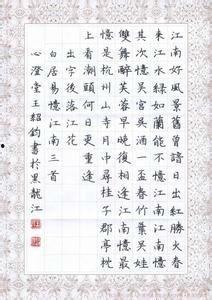 江南好風景舊曾諳日出紅勝火春
来江水綠如藍能不憶江南江南憶
其次憶吳宮吳酒一盃春竹葉吳娃
雙舞醉芙蓉早晚復相逢江南憶最
憶是杭州山寺月中尋桂子郡亭枕
上看潮頭何日更重逢
出字後落江花
白居易憶江南三首
心澄堂王紹鈞書於黑龍江